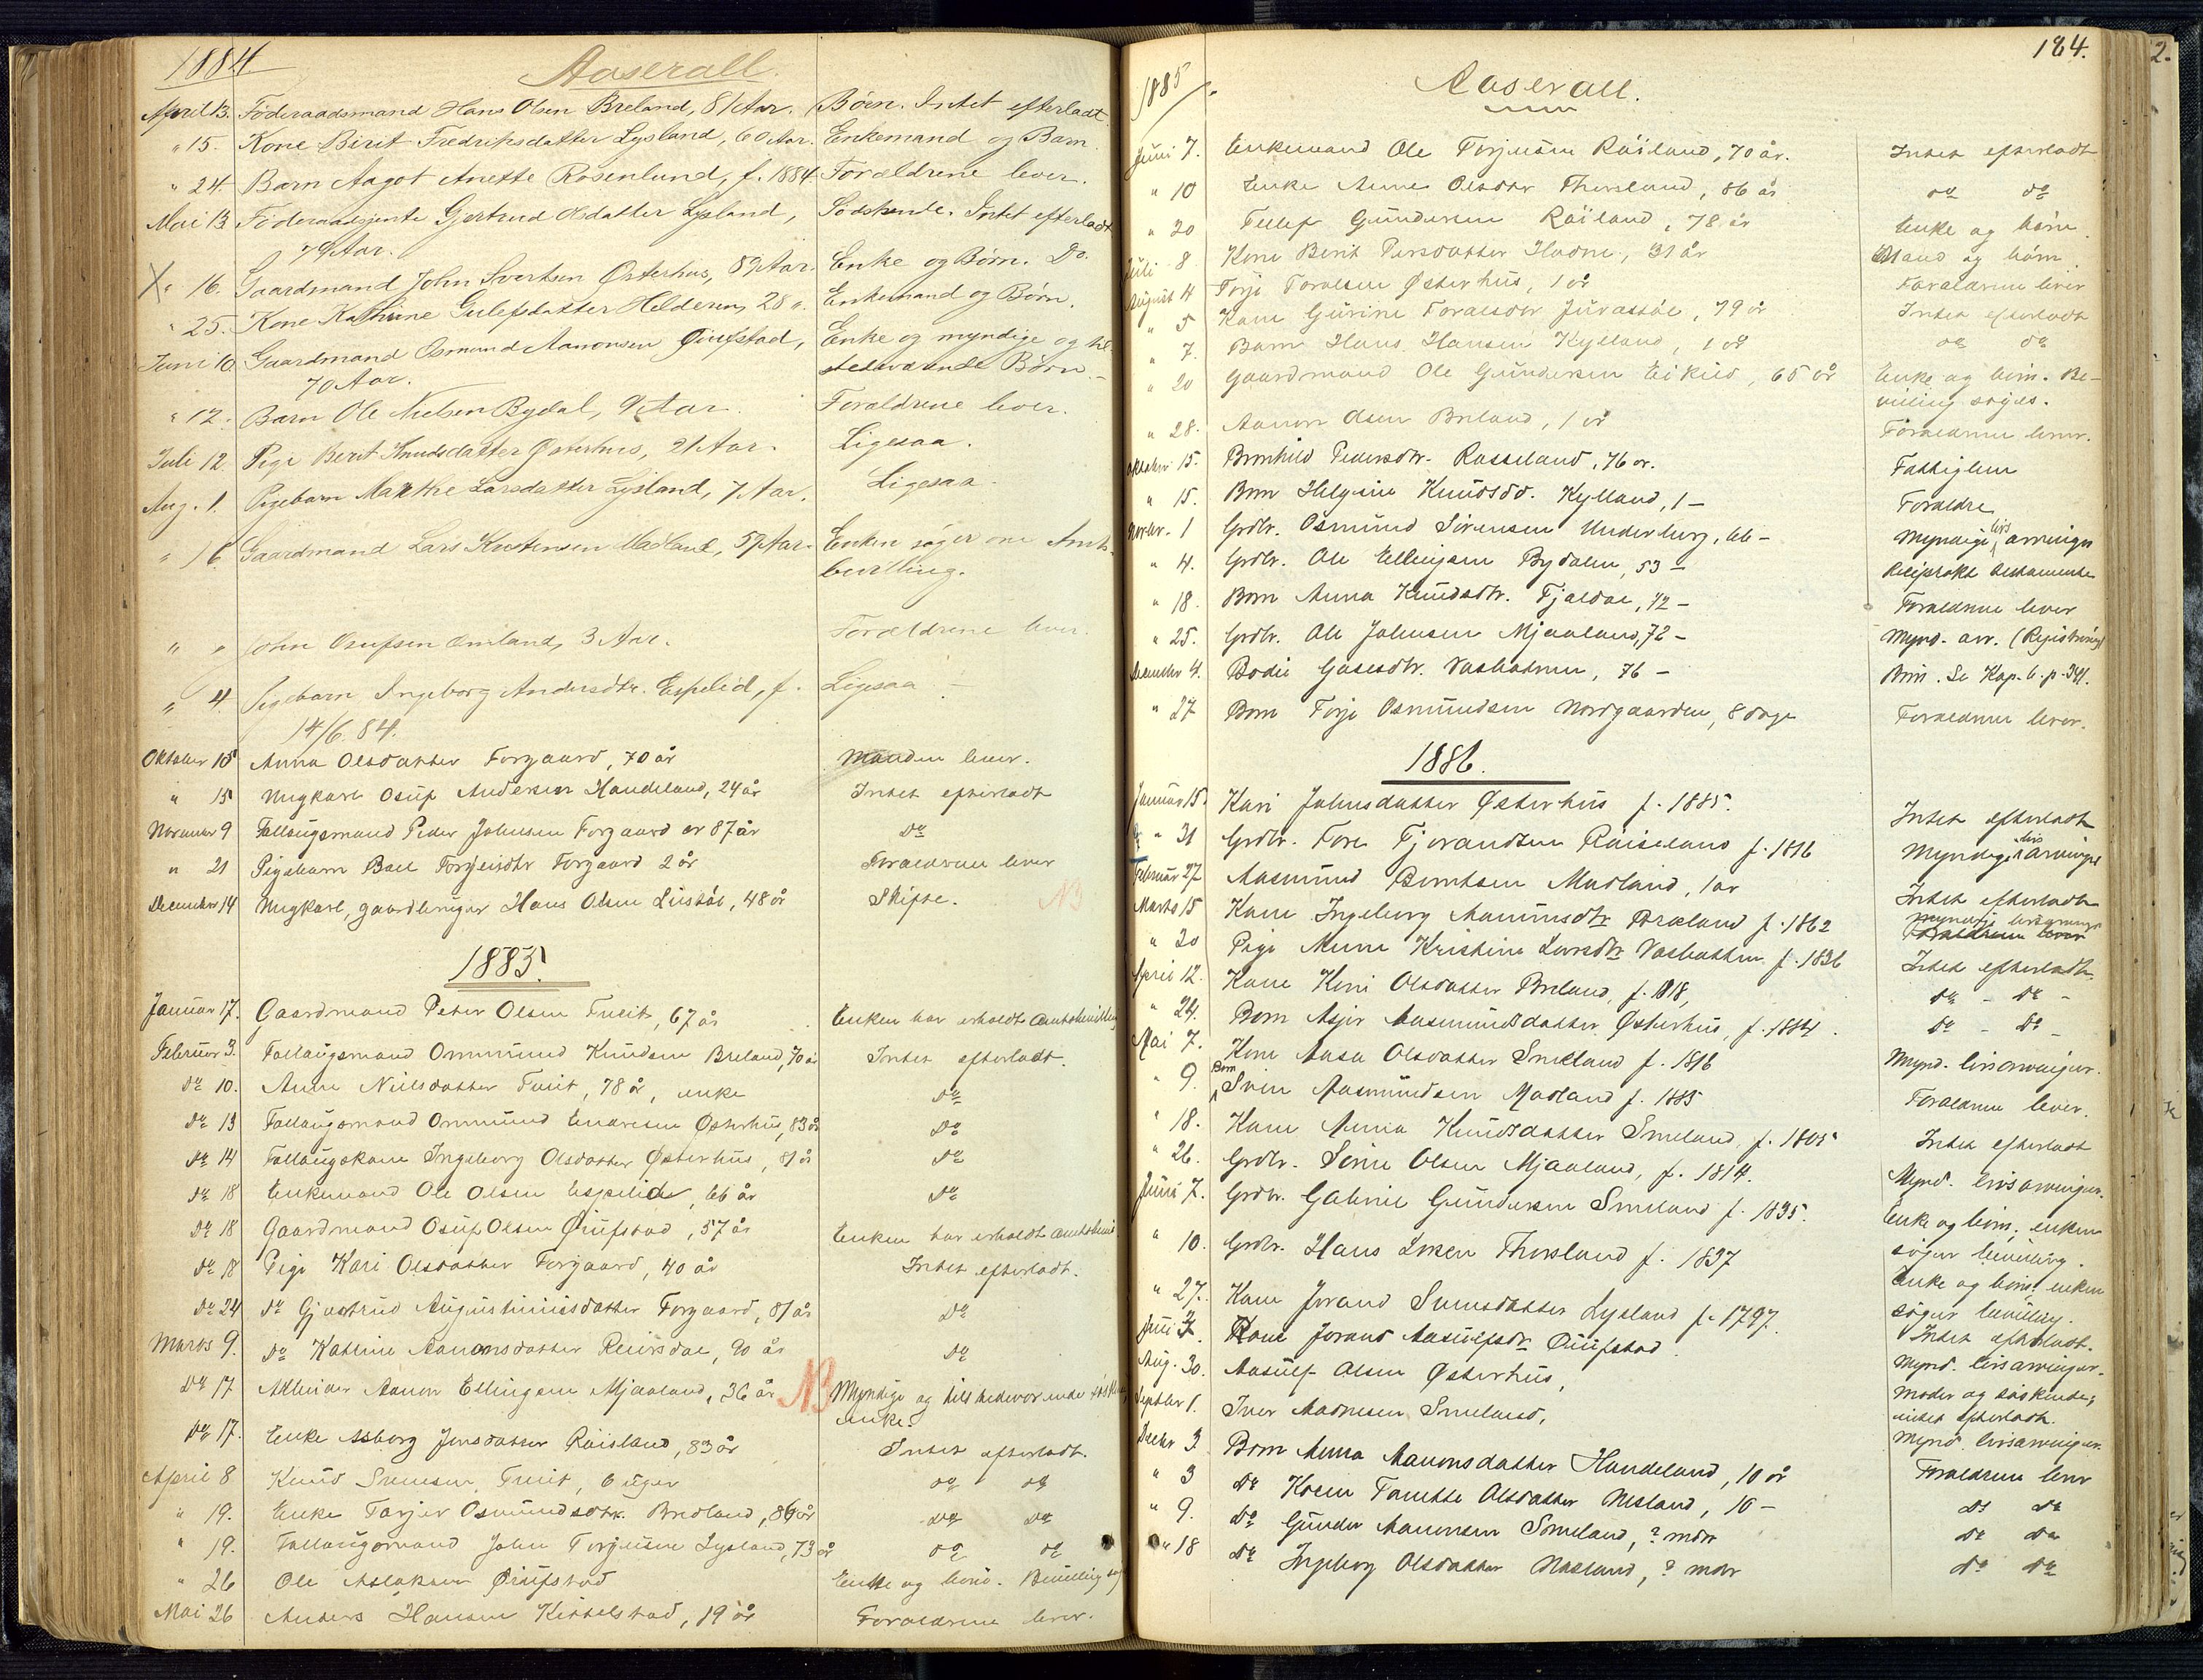 1884
Aaserall.
April 13. Föderaadsmand Hans Olsen Breland, 81 Aar. Børn. Intet efterladt
" 15. Kone Birit Fredriksdatter Lysland, 60 Aar. Enkemand og Barn.
" 24 Barn Aagot Anette Rosenlund, f. 1884 Forældrene lever.
Mai 13 Föderaadsjente Gjertrud Olsdatter Lysland, Södskende. Intet efterladt
79 Aar.
" 16. Gaardmand John Ivertsen Østerhus, 89 Aar. Enke og Børn. Do.
" 25. Kone Kathrine Gulefsdatter Helderen, 28 ". Enkemand og Børn.
Juni 10 Gaardmand Osmund Aanonsen Øiufstad, Enke og myndige og til-
70 Aar. stedeværende Børn -
" 12. Barn Ole Nielsen Bydal, 9 Aar. Forældrene lever.
Juli 12 Pige Berit Knudsdatter Østerhus, 21 Aar. Ligesaa.
Aug. 1. Pigebarn Marthe Larsdatter Lysland, 7 Aar. Ligesaa -
" 16 Gaardmand Lars Knutensen Madland, 57 Aar. Enken søger om Amts-
bevilling.
" " John Osufsen Omland, 3 Aar. Forældrene lever.
" 4 Pigebarn Ingeborg Andersdtr. Espelid, f. Ligesaa -
14/6. 84.
Oktober 15 Anna Olsdatter Forgaard, 70 år Manden lever.
" 15 Ungkarl Osuf Andersen Haudeland, 24 år Intet efterladt
November 9 Follaugsmand Peder Johnsen Forgaard er 87 år Do
" 21 Pigebarn Boel Torjeisdtr Forgaard 2 år Forældrene lever
December 14 Ungkarl, gaardbruger Hans Olsen Liestøl, 48 år Skifte. NB
1885.
Januar 17. Gaardmand Peter Olsen Tveit, 67 år Enken har erholdt amtsbevilling
Februar 3. Follaugsmand Ommund Knudsen Breland, 70 år Intet efterladt.
Do 10. Anne Nielsdatter Tveit, 78 år, enke Do
Do 13 Follaugsmand Ommund Endresen Østerhus, 83 år Do
Do 14 Follaugskone Ingeborg Olsdatter Østerhus, 81 år Do
Do 18 Enkemand Ole Olsen Espelid, 66 år Do
Do 18 Gaardmand Osuf Olsen Øiufstad, 57 år Enken har erholdt amtsbevil
Do 18 Pige Kari Olsdatter Forgaard, 40 år Intet efterladt.
Do 24 Do Gjertrud Augustinusdatter Forgaard, 81 år Do
Marts 9. Do Kathrine Aanonsdatter Reiersdal, 90 år Do
Do 17 Aanon Ellingsen Mjaaland, 36 år NB Myndige og tilstedeværende
enke.
Do 17. Enke Asborg Jensdatter Röisland, 83 år Intet efterladt.
April 8 Knud Svensen Tveit, 6 uger Do Do
" 19. Enke Torjer Osmundsdtr. Bredland, 86 år Do Do
" 19. Follaugsmand John Torjusen Lysland, 73 år Do Do
" 26 Ole Aslaksen Øiufstad Enke og børn. Bevilling
Mai 26 Anders Hansen Kittelstad, 19 år Forældrene lever.
184.
1885.
Aaserall.
Juni 7. Enkemand Ole Torjusen Röiland, 70 år. Intet efterladt
" 10 Enke Anne Olsdtr Thorsland, 86 år Do Do
" 20 Tellef Gundersen Röiland, 78 år Enke og börn.
Juli 8 Kone Berit Persdatter Hadne, 31 år Mand og börn.
August 4 Torje Toralsen Østerhus, 1 år Forældrene lever
" 5 Kone Gurine Toralsdtr Juvastöl, 79 år Intet efterladt
" 7. Barn Hans Hansen Kylland, 1 år Do Do
" 20 Gaardmand Ole Gundersen Eikild, 65 år Enke og börn. Be-
villing søges.
" 28. Aanon Olsen Breland, 1 år Forældrene lever.
Oktober 15. Bronhild Pedersdtr. Rosseland, 76 år. Fattiglem
" 15. Barn Helgine Knudsdr. Kylland, 1 - Forældre
Novbr. 1 Grdbr. Osmund Sörensen Underberg, 66 - Myndige livs arvinger
" 4. Grdbr. Ole Ellingsen Bydalen, 53 - Reciprokt testamente
" 18. Barn Anna Knudsdtr. Fjeldal, 12 - Forældrene lever
" 25. Grdbr. Ole Johnsen Mjaaland, 72 - Mynd. arv. (Registrering)
December 4. Bodil Gaasesdtr. Vasbotnen, 76 - Börn. Se Kop. b. p. 341.
" 27 Barn Torje Osmundsen Nordgaarden, 8 dage Forældrene lever.
1886.
Januar 15. Kari Johnsdatter Østerhus f. 1885. Intet efterladt
" 31 Grdbr. Tore Tjorandsen Röiseland f. 1816 Myndige livs arvinger
Februar 27 Aasmund Berntsen Madland, 1 år Intet efterladt
Marts 15 Kone Ingeborg Aanonsdtr Breland f. 1862 Myndige livsarvinger
" 20 Pige Anne Kristine Larsdtr Vasbotten f. 1836 Intet efterladt
April 12. Kone Kari Olsdatter Breland, f. 1818, Do - Do -
" 24. Barn Asjer Aasmundsdatter Østerhus, f. 1884. Do - Do -
Mai 7. Kone Aasa Olsdatter Smeland f. 1816 Mynd. livsarvinger.
" 9. Barn Sven Aasmundsen Madland f. 1885 Forældrene lever.
" 18. Kone Anna Knudsdatter Smeland, f. 1805 Intet efterladt
" 26. Grdbr. Sören Olsen Mjaaland, f. 1814. Mynd. livsarvinger.
Juni 7. Grdbr. Gabriel Gundersen Smeland f. 1835. Enke og börn, enken
søger bevilling.
" 10. Grdbr. Hans Larsen Thorsland f. 1837 Enke og børn, enken
søger bevilling.
" 27. Kone Jorand Svensdatter Lysland f. 1797. Intet efterladt.
Juli 7. Kone Jorand Aasulfsdr Øiufstad Mynd. livsarvinger.
Aug. 30. Aasulf Olsen Østerhus, Moder og söskende;
intet efterladt.
Septbr 1. Iver Madnesen Smeland, Mynd. livsarvinger.
Decbr 3. Barn Anna Aanonsdatter Haudeland, 10 år Forældrene lever
" 3 Do Karen Tomette Olsdatter Nesland, 10 - Do Do
" 9. Do Gunder Aanonsen Smeland, ? mdr Do Do
" 18 Do Ingeborg Olsdatter Nesland, ? mdr Do Do